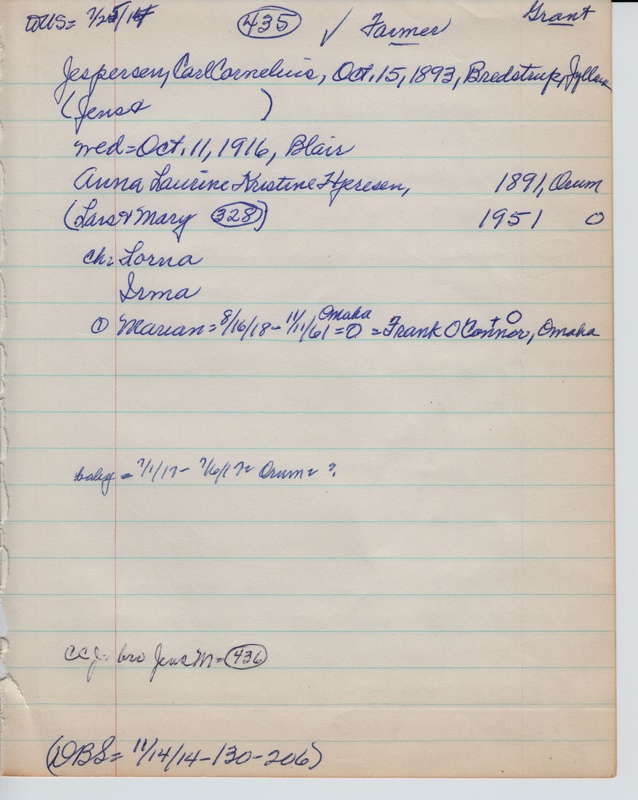 DUS= 7/25/14 435 ✓ Farmer Grant
Jespersen, Carl Cornelius, Oct. 15, 1893, Bredstrup, Jylland
(Jens & )
wed = Oct. 11, 1916, Blair
Anna Laurine Kristine Hjeresen, 1891, Orum
(Lars & Mary 328) 1951 O
ch: Lorna
Irma
① Marian = 8/16/18 - 11/11/61 Omaha = O = Frank O'Connor, + O Omaha
baby = 7/1/17 - 7/6/17 = Orum = ?
CCJ = bro Jens M = 436
(DBS = 11/14/14-130-206)